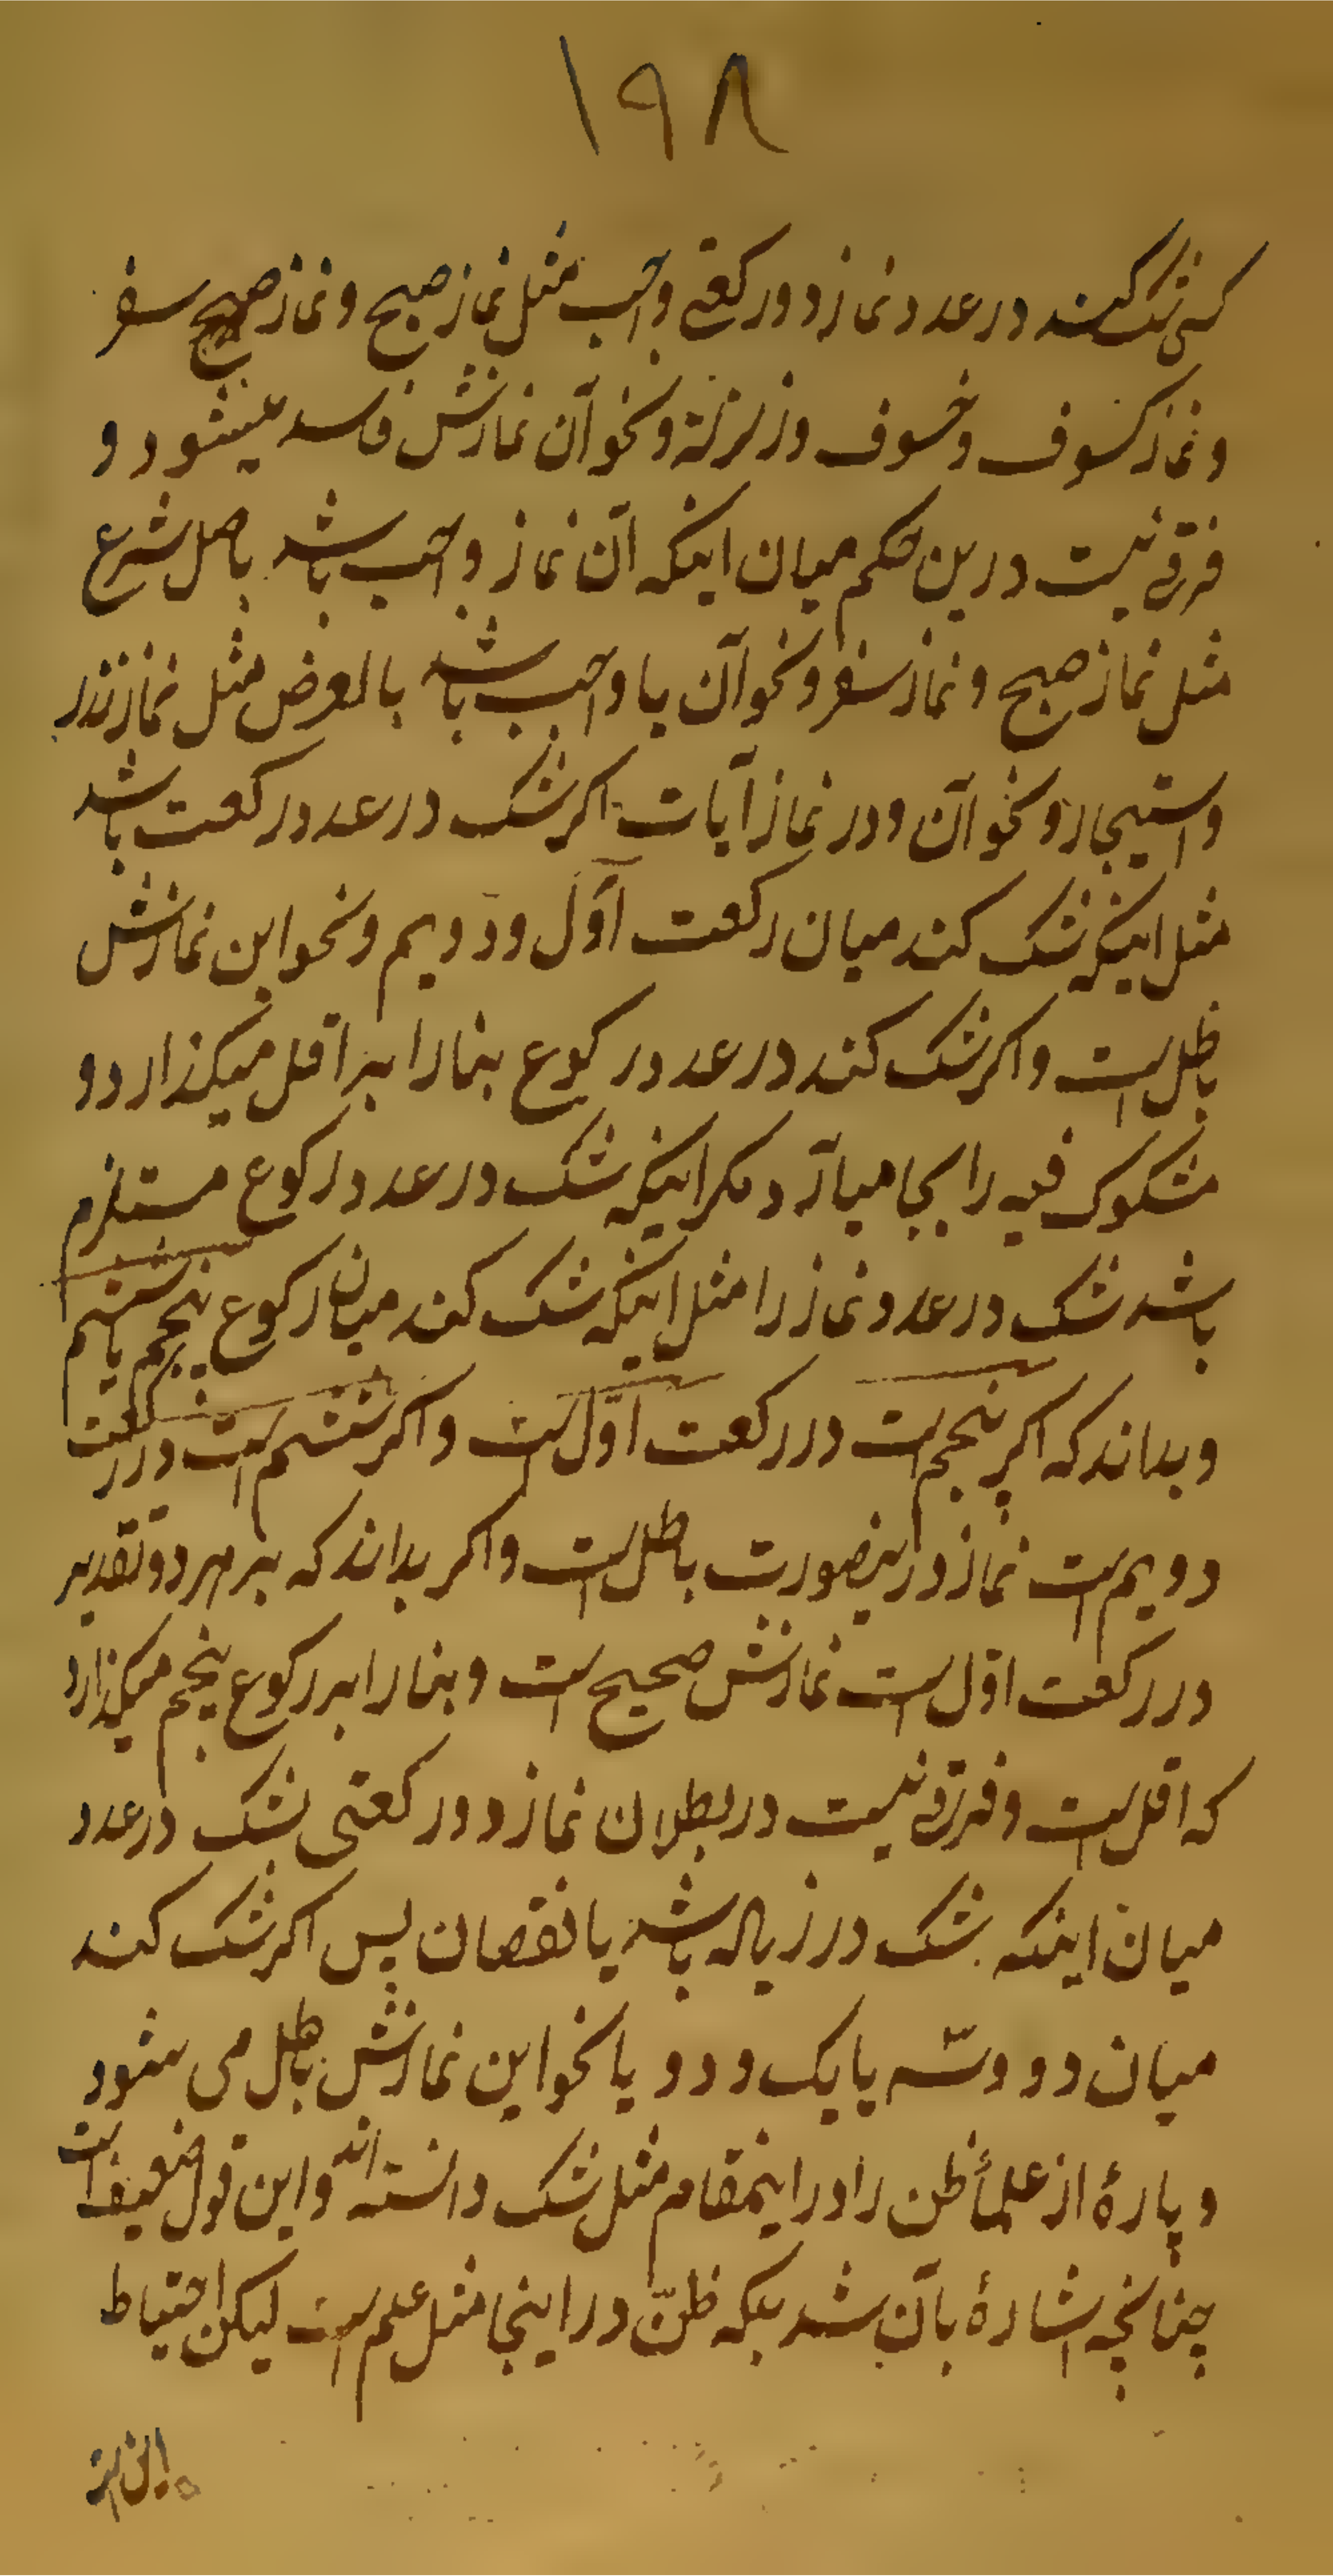 ۱۹۸
کسی شک کند در عدد نماز دو رکعتی واجب مثل نماز صبح و نماز صبح سفر
و نماز کسوف و خسوف و زلزلة و نحو آن نمازش فاسد میشود و
فرقی نیست درین حکم میان اینکه آن نماز واجب باشد باصل شرع
مثل نماز صبح و نماز سفر و نحو آن یا واجب باشد بالعرض مثل نماز نذر
و استیجار و نحو آن و در نماز آیات اکر شک در عدد رکعت باشد
مثل اینکه شک کند میان رکعت اوّل و دویم و نحو این نمازش
باطل است و اکر شک کند در عدد رکوع بنا را بر اقل میکذارد و
مشکوک فیه را بجا میآرد مکر اینکه شک در عدد رکوع مستلزم
باشد شک در عدد نماز را مثل اینکه شک کند میان رکوع پنجم یا ششم
و بداند که اکر پنجم است در رکعت اوّل است و اکر ششم است در رکعت
دویم است نماز درینصورت باطل است و اکر بداند که بر هر دو تقدیر
در رکعت اوّل است نمازش صحیح است و بنا را بر رکوع پنجم میکذارد
که اقل است و فرقی نیست در بطلان نماز دو رکعتی بشک در عدد
میان اینکه شک در زیاله باشد یا نقصان پس اکر شک کند
میان دو و سّه یا یک و دو یا نحو این نمازش باطل می شود
و پارۀ از علمأ ظن را در اینمقام مثل شک دانسته اند و این قول ضعیف است
چنانچه اشارۀ بآن شد بلکه ظنّ در اینجا مثل علم است لیکن احتیاط